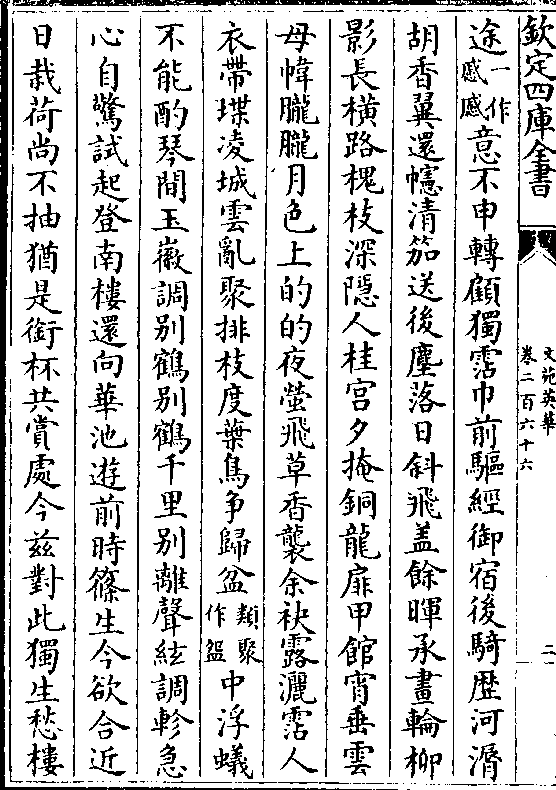 欽定四庫全書
文苑英華
卷二百六十六
二
途一作慼慼意不申轉顧獨霑巾前驅經御宿後騎歴河漘
胡香翼還幰清笳送後塵落日斜飛蓋餘暉承畫輪柳
影長橫路槐枝深隱人桂宮夕掩銅龍扉甲館宵垂雲
母幃朧朧月色上的的夜螢飛草香襲余袂露灑霑人
衣帶堞凌城雲亂聚排枝度葉鳥争歸盆類聚作盌中浮蟻
不能酌琴間玉徽調别鶴别鶴千里别離聲絃調軫急
心自驚試起登南樓還向華池遊前時篠生今欲合近
日栽荷尚不抽猶是銜杯共賞處今兹對此獨生愁樓